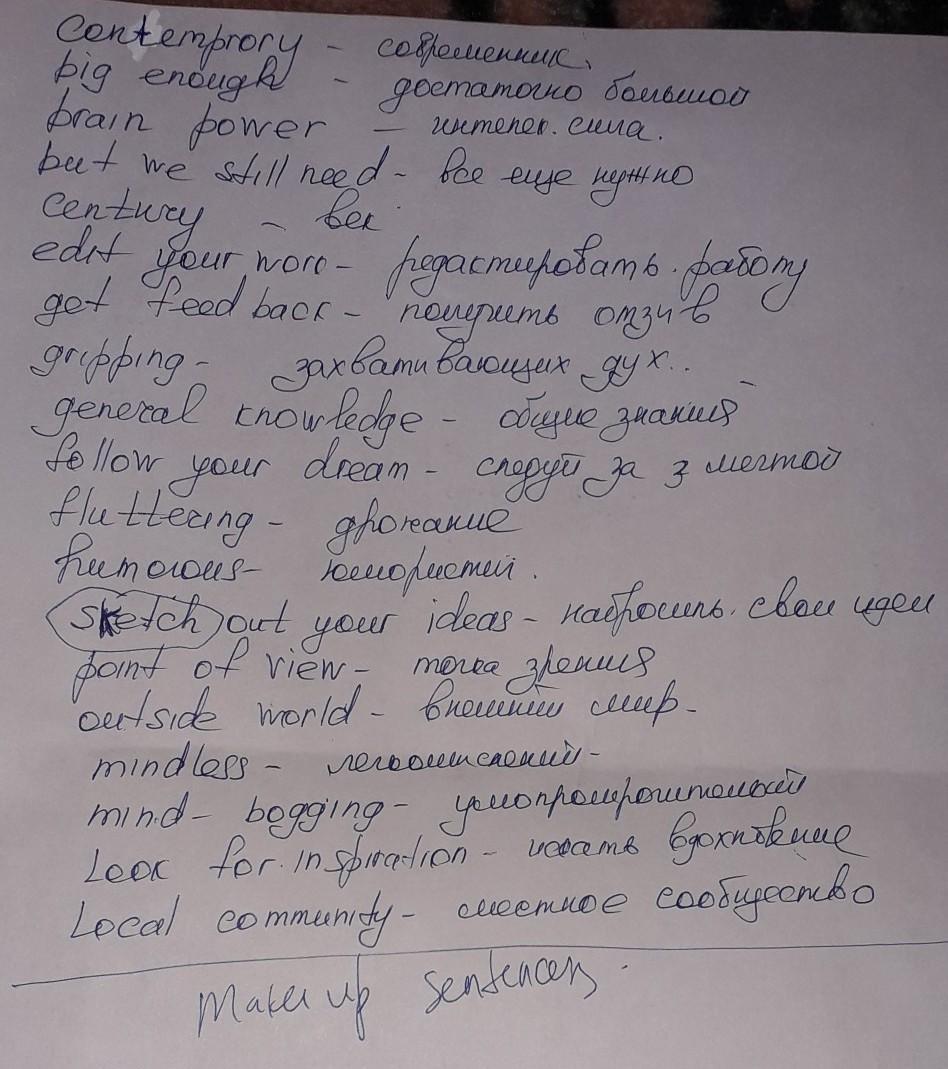 contemprory - современник.
big enough - достаточно большой
brain power - интелек. сила.
but we still need - все еще нужно
century - век
edit your worc - редастировать работу
get feed back - получить отзив
gripping - захватывающих дух..
general knowledge - общие знания
follow your dream - следуй за з мечтой
fluttering - дрожание
humorous - юмористий.
sketch out your ideas - набросить свои идеи
point of view - точка зрения
outside world - внешний мир -
mindless -
mind - bogging -
Look for inspiration - искать вдохновение
Local community - местное сообщество
Make up sentences.